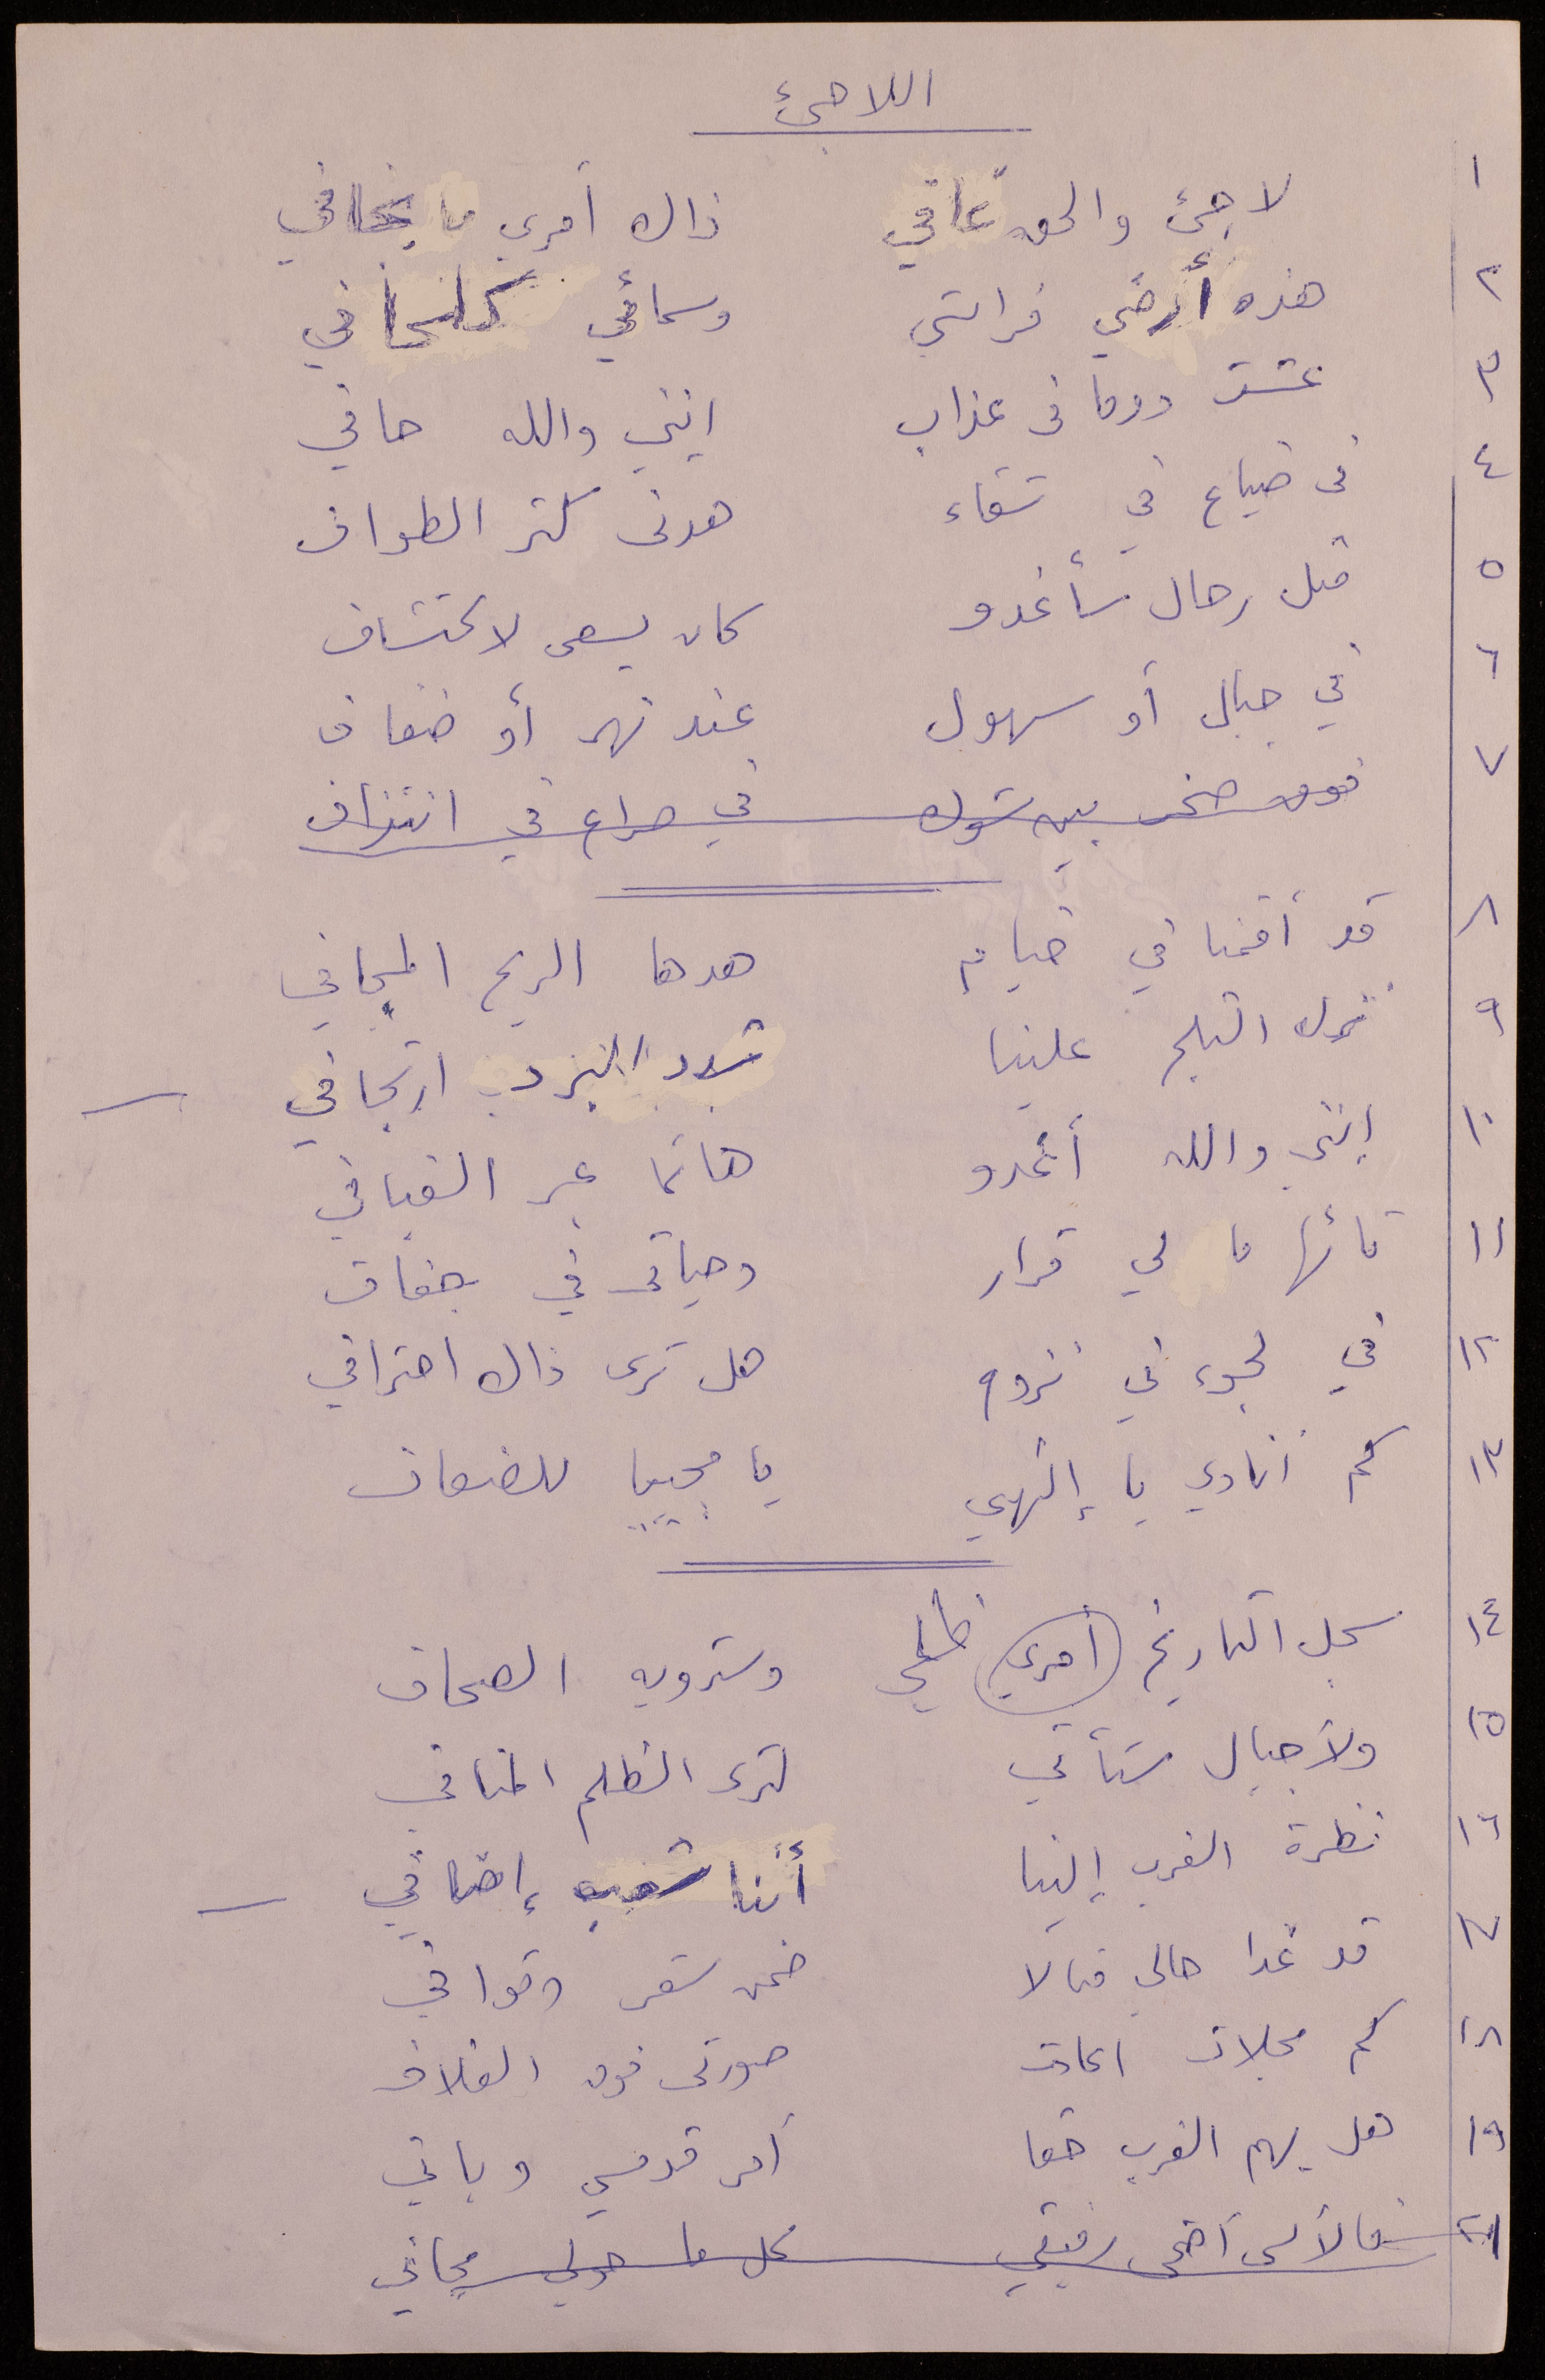 اللاجئ
١ لاجئ والحق عافي ذاك أمري ما بخافي
٢ هذه أرضي فراشي وسمائي كلحافي
٣ عشت دوما فى عذاب إنني والله حافي
٤ فى ضياع في شقاء هدنى كثر الطواف
٥ مثل رحال سأغدو كان يسعى لاكتشاف
٦ في جبال أو سهول عند نهر أو ضفاف
٧ فوق صخر بين شوك في صراع في انتزاف
٨ قد أقمنا في خيام هدها الريح المجافي
٩ نزل الثلج علينا شدد البرد ارتجافي
١٠ إنني والله أغدو هائما عبر الفيافي
١١ تائها ما لي قرار وحياتى في جفاف
١٢ في لجوء في نزوح هل ترى ذاك احترافي
١٣ كم أنادي يا إلهي يا مجيبا للضعاف
١٤ سجل التاريخ أمري ظلمي وسترويه الصحاف
١٥ ولأجيال ستأتي لترى الظلم المنافي
١٦ نظرة الغرب إلينا أننا شعب إضافي
١٧ قد غدا حالي مثالا ضمن شعر وقوافي
١٨ كم مجلات أعادت صورتى فوق الغلاف
١٩ هل يهم الغرب حقا أمر قدسي ويافي
فالأسى أضحى رفيقي كل ما حولي مجافي